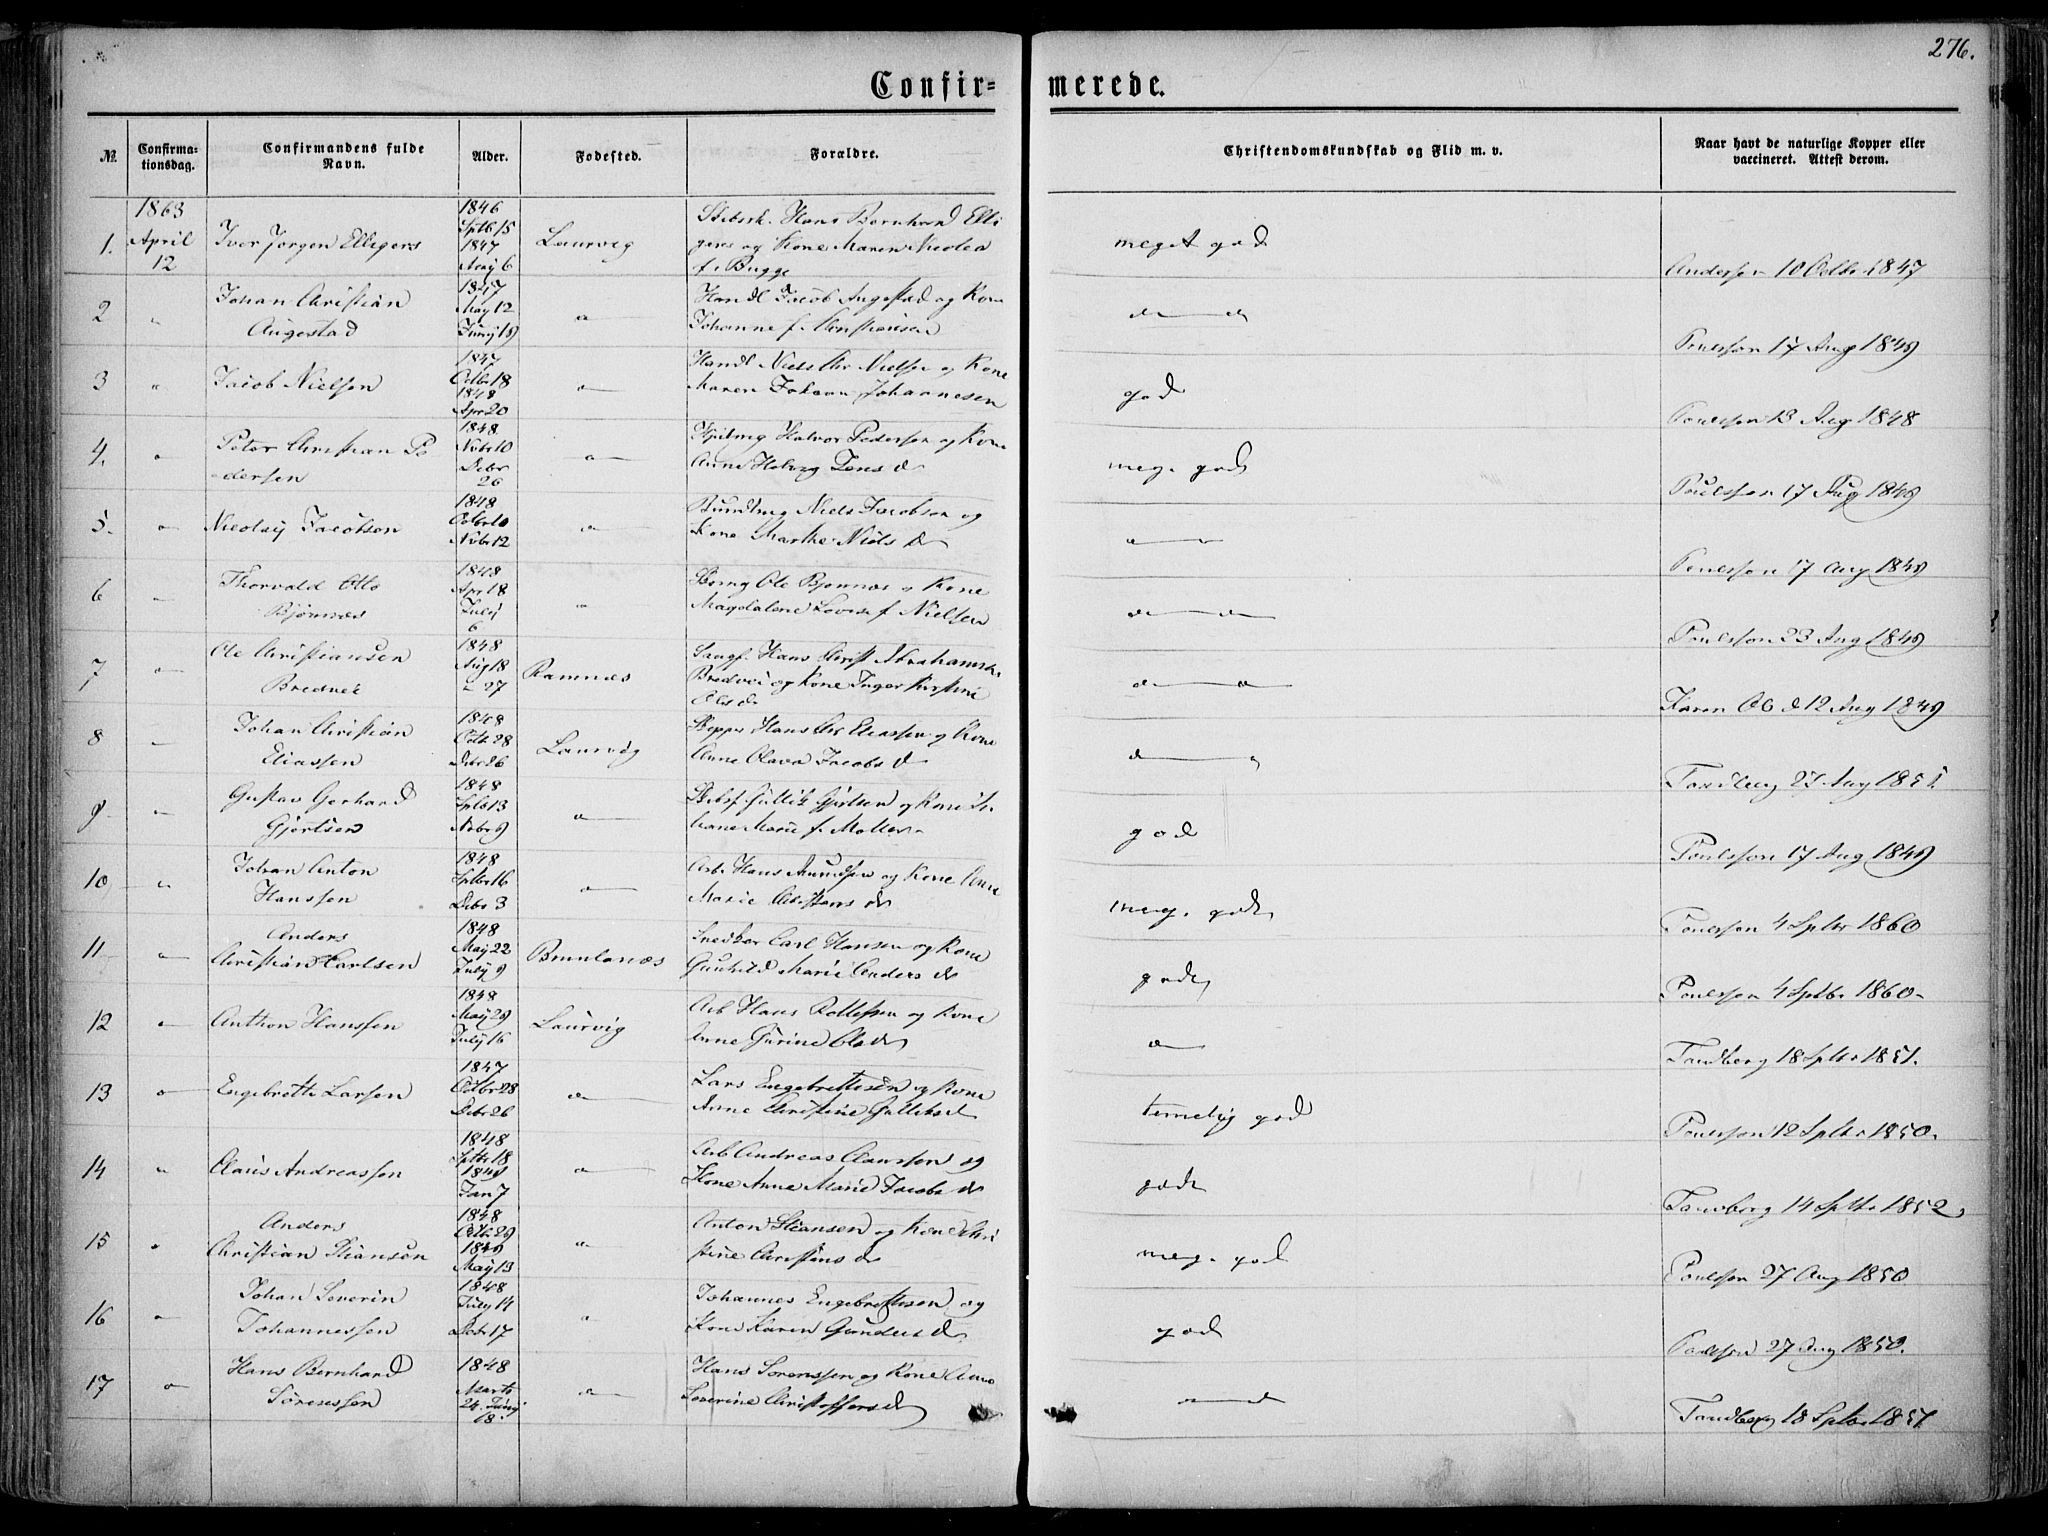 276.
Confir-
merede.
№
Confirma-
tionsdag.
Confirmandens fulde
Navn.
Alder.
Fødested.
Forældre.
Christendomskundskab og Flid m. v.
Naar havt de naturlige Kopper eller
vaccineret. Attest derom.
1863
1. April
12
Iver Jørgen Elligers
1846
Sptb 15
1847
May 6
Laurvig
Hans Bernhard Elli
gers og Kone Maren Nicolea
f. Bugge
meget god
Anderssen 10 Octbr 1847
2 "
Johan Christian
Augestad
1847
May 12
Juny 19
Handl Jacob Augestad og Kone
Johanne f. Christiansen
Poulsson 17 Aug 1849
3 "
Jacob Nielsen
1847
Octbr 18
1848
Apr 20
Handl Niels Chr Nielsen og Kone
Maren Johannesen
god
Poulsson 13 Aug 1848
4. "
Peter Christian Pe
dersen
1848
Nobr 10
Debr
26
Halvor Pedersen og Kone
Anne Helvig Jens d
meg. god
Poulsson 17 Aug 1849
5. "
Nicolay Jacobsen
1848
Octbr 10
Nobr 12
Niels Jacobsen og
Kone Marthe Niels d
Poulsson 17 Aug 1849
6 "
Thorvald Otto
Bjønnæs
1848
Apr 18
July
6
Ole Bjønnæs og Kone
Magdalene Lovise f. Nielsen
Poulsson 23 Aug 1849
7 "
Ole Christiansen
Bredvei
1848
Aug 18
" 27
Ramnæs
Hans Christ Abrahams
Bredvei og Kone Inger Kirstine
Ols d
Karen Ols d 12 Aug 1849
8 "
Johan Christian
Eliassen
1848
Octb 28
Debr 26
Laurvig
Hans Chr Eliassen og Kone
Anne Olava Jacobs d
Tandberg 27 Aug 1851
9 "
Gustav Gerhard
Gjertsen
1848
Sptb 13
Nobr 9
Gullik Gjertsen og Kone
Marie f. Møller
god
Poulsson 17 Aug 1849
10 "
Johan Anton
Hanssen
1848
Sptbr 16
Debr 3
Arb. Hans Amundsen og Kone Anne
Marie Christens d
meg. god
Poulsson 4 Sptbr 1860
11 "
Anders
Christian Carlsen
1848
May 22
July 9
Brunlanæs
Snedker Carl Hansen og Kone
Gunhild Marie Anders d
god
Poulsson 4 Sptbr 1860
12 "
Anthon Hanssen
1848
May 29
July 16
Laurvig
Arb Hans Rollefsen og Kone
Anne Gurine Ols d
Tandberg 18 Sptbr 1851.
13 "
Engebrette Larsen
1847
Octbr 28
Debr 26
Lars Engebrettsen og Kone
Anne Christine Gulliks d
temelig god
Poulsson 12 Sptbr 1850.
14 "
Claus Andreassen
1848
Sptbr 18
1849
Jan 7
Arb Andreas Claussen og
Kone Anne Marie Jacobs d
god
Tandberg 14 Sptbr 1852
15 "
Anders
Christian Stiansen
1848
Octb 29
1849
May 13
Anton Stiansen og Kone Chri
stine Christens d
meg. god
Poulsson 27 Aug 1850
16 "
Johan Severin
Johannessen
1848
July 14
Debr 17
Johannes Engebrettsen og
Kone Karen Gunders d
god
Poulsson 27 Aug 1850.
17 "
Hans Bernhard
Sørensen
1848
Marts
24. Juny
18.
Hans Sørenssen og Kone Anne
Severine Christoffers d
Tandberg 18 Sptbr 1851